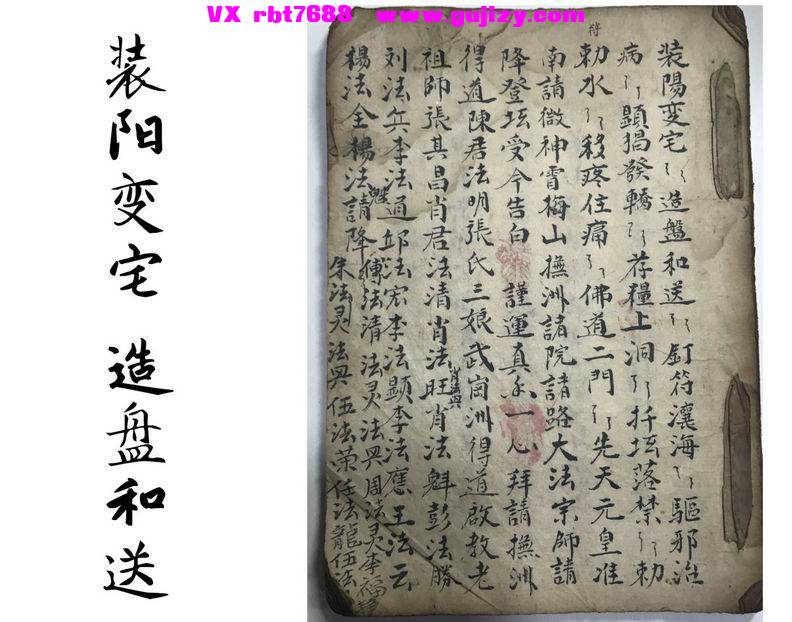 VX rbt7688 www.gujizy.com
装阳变宅 造盘和送
符
装陽变宅〻造盤和送〻釘符瀼海〻驅邪治
病〻顕猖發轎〻存糧上洞〻扦坛落禁〻勅
勅水〻移疼住痛〻佛道二門〻先天元皇准
南請微神霄梅山撫洲諸院諸路大法宗師請
降登坛受今告白 謹運真香一心拜請撫洲
得道陳君法明張氏三娘武崗洲得道啟教老
祖師張其昌肖君法清肖法旺肖法魁彭法勝
肖法興
刘法兵李法通邱法宏李法顕李法應王法云
楊法全楊法請降傅法清法灵法興周法灵李福
魁
朱法灵法興伍法荣任法龍伍法